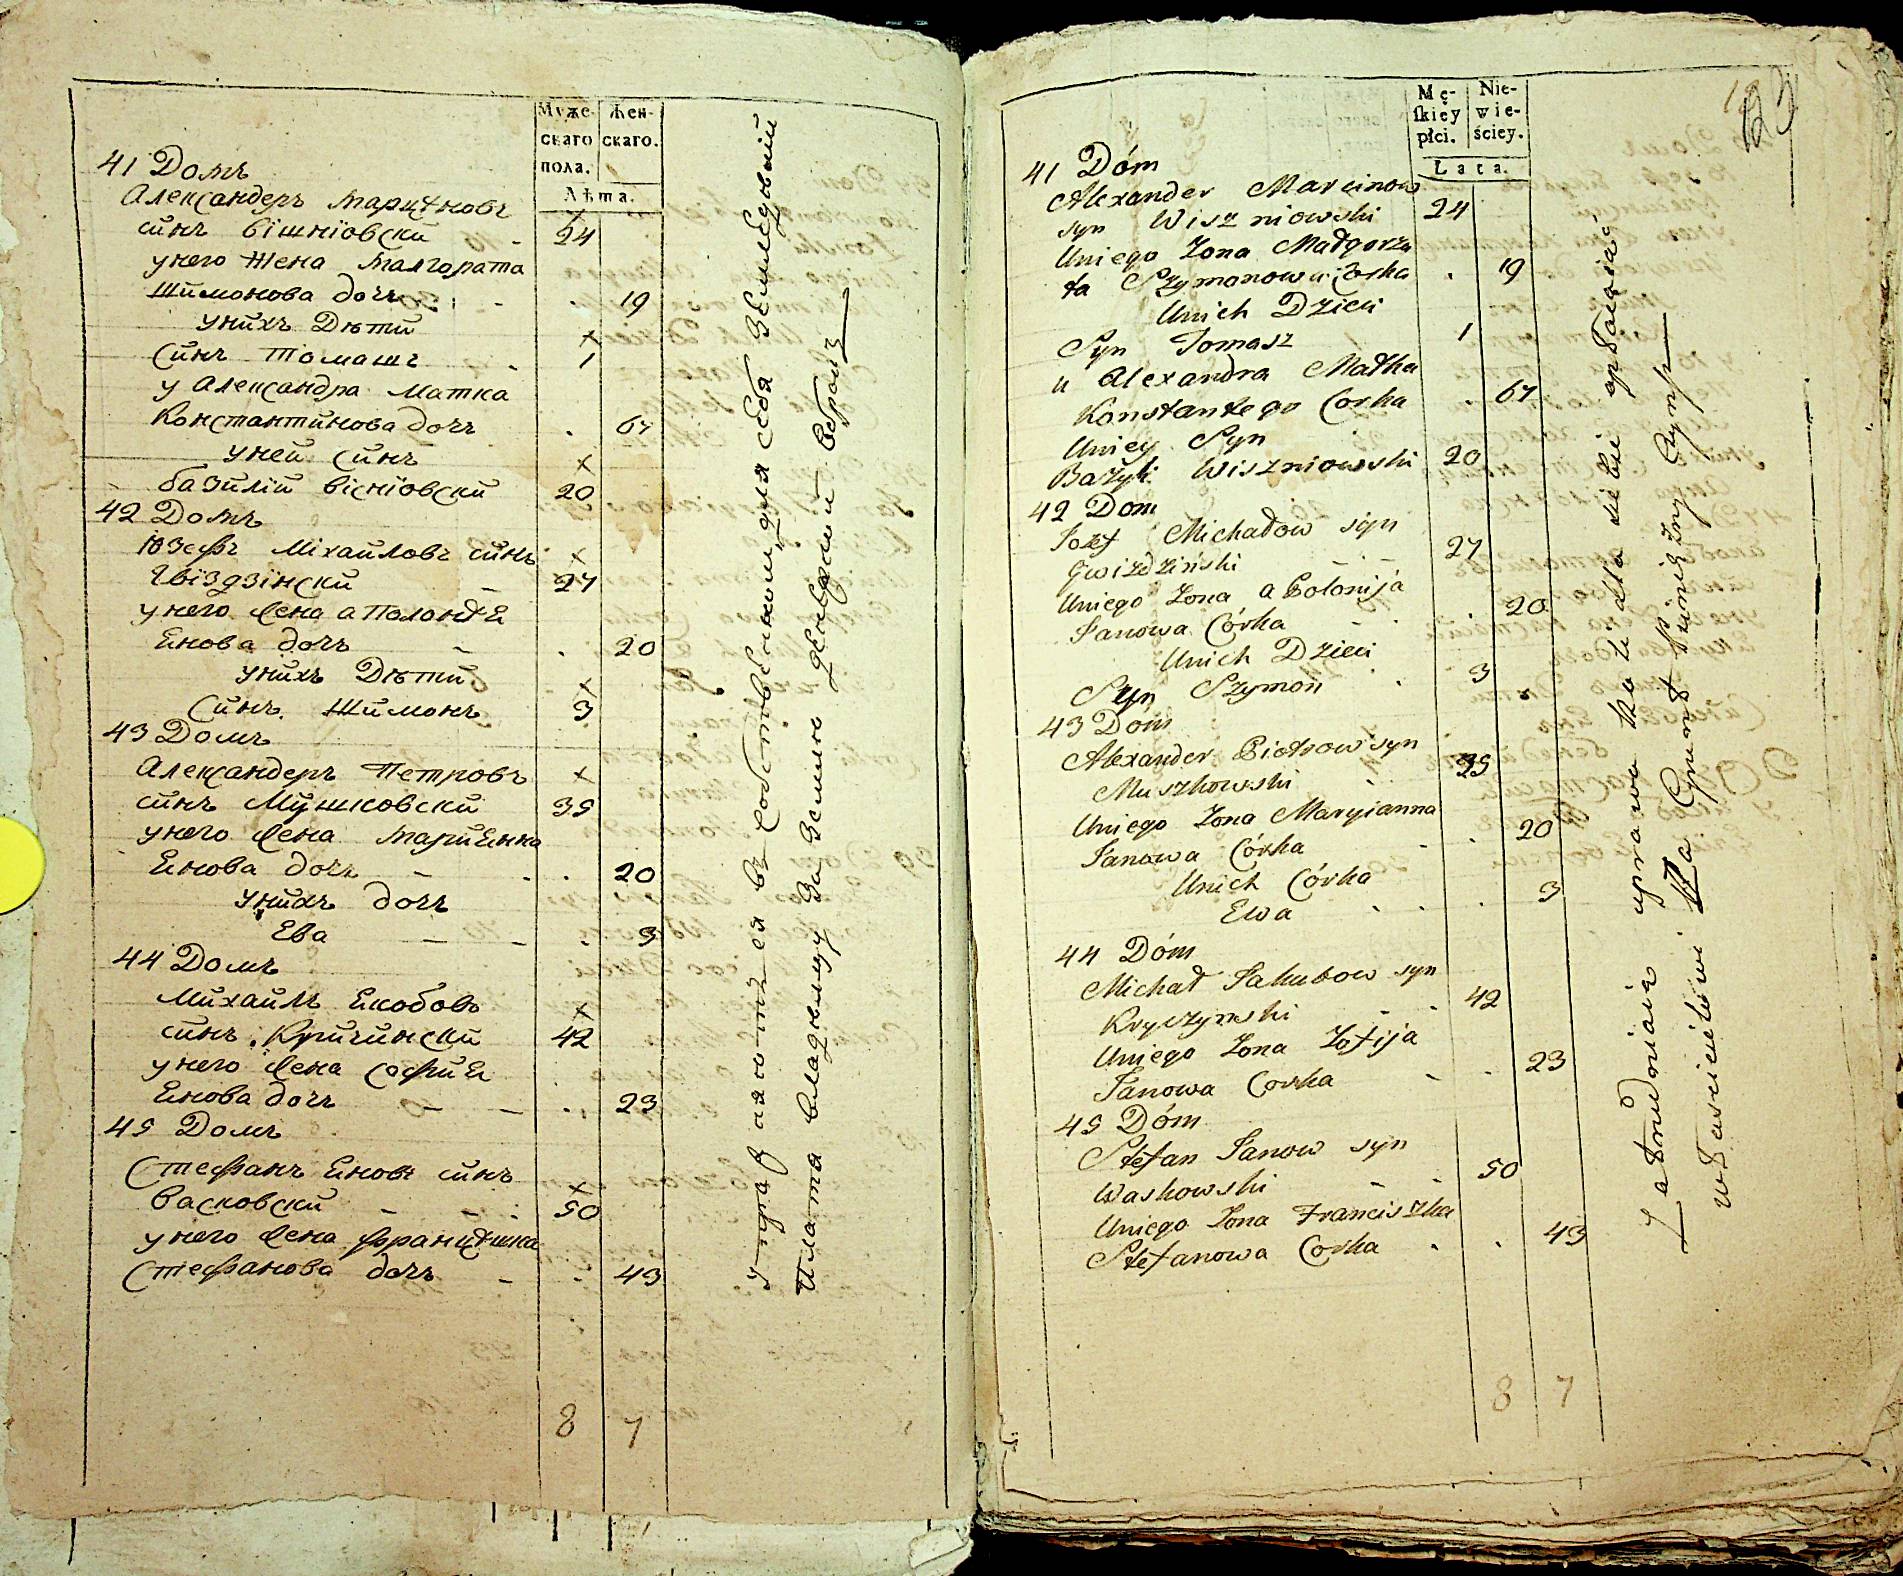 Муже-
скаго
пола.
Жен-
скаго.
Лѣта.
41 Домъ
Александеръ Марцѣновъ
синъ Вішніовски 24
у него жена Малгората
Шимонова дочъ 19
у нихъ Дѣти
Синъ Томашъ 1
у Александра Матка
Константинова дочъ 67
у ней синъ
базилій Вісніовски 20
42 Домъ
Юзефъ Міхайловъ синъ
Гвіздзінски 27
у него жена аполонѣѣ
Енова дочъ 20
у нихъ Дѣти
Синъ Шимонъ 3
43 Домъ
Александеръ Петровъ
синъ Мушковски 35
у него жена Мариенна
Енова дочъ 20
у нихъ дочъ
Ева 3
44 Домъ
Михайлъ Екобовъ
синъ Кричински 42
у него жена Софие
Енова дочъ 23
45 Домъ
Стефанъ Еновъ синъ
Васковски 50
у него жена Францѣшка
Стефанова дочъ 43
8 7
упражняютцея въ собственномъ для себя земледовій
плата владельцу за землю серебромъ
123
Mę-
skiey
płci.
Nie-
wie-
ściey.
Lata.
41 Dóm
Alexander Marcinow
syn Wiszniowski 24
Uniego Zona Małgorza
ta Szymonowa Corka 19
Unich Dzieci
Syn Tomasz 1
u Alexandra Matka
Konstantego Corka 67
Uniey Syn
Bazyli Wiszniowski 20
42 Dom
Jozef Michałow syn
Gwizdziński 27
Uniego Zona aPolonija
Janowa Córka 20
Unich Dzieci
Syn Szymon 3
43 Dóm
Alexander Piotrow syn
Muszkowski 35
Uniego Zona Maryianna
Janowa Córka 20
Unich Córka
Ewa 3
44 Dóm
Michał Jakubow syn
Kryczynski 42
Uniego Zona Zofija
Janowa Corka 23
45 Dóm
Stefan Janow syn
Waskowski 50
Uniego Zona Franciszka
Stefanowa Corka 43
8 7
Zatrudniaią uprawa dla siebie opłacaiąc
właścicielowi Za Grunt Pinięzny Czynsz